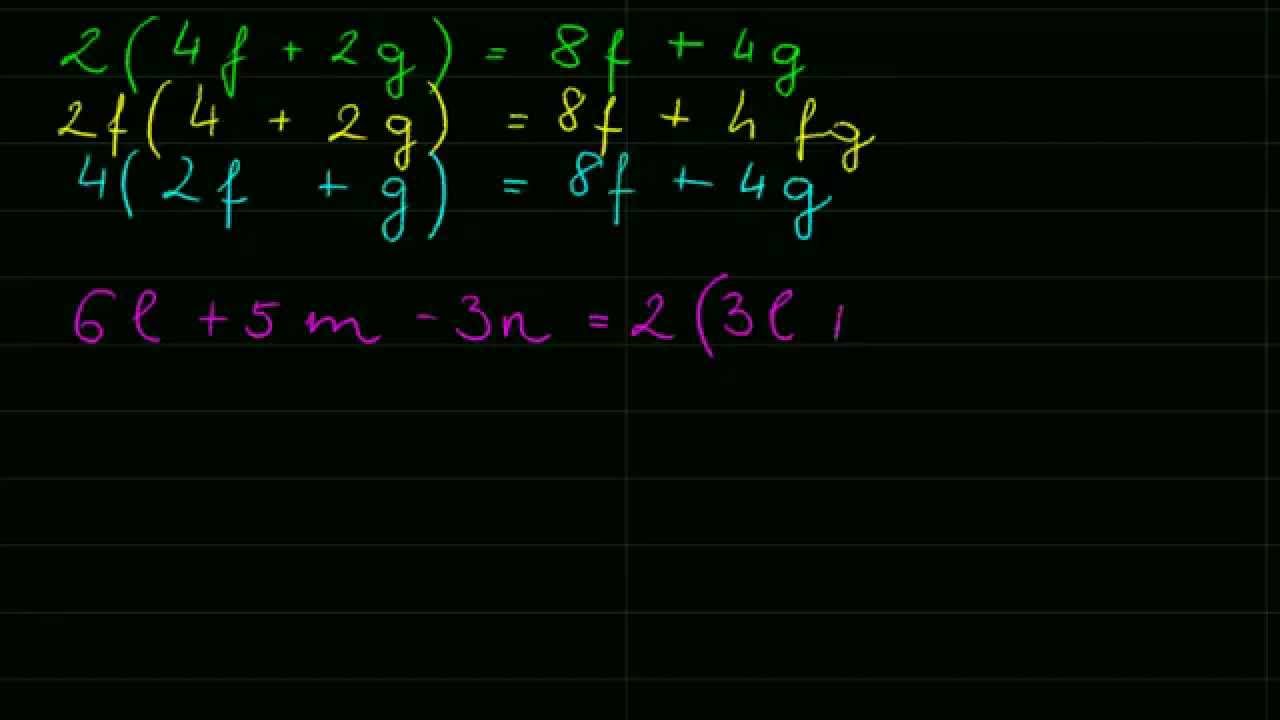 2(4f + 2g) = 8f + 4g
2f(4 + 2g) = 8f + 4fg
4(2f + g) = 8f + 4g
6l + 5m - 3n = 2(3l